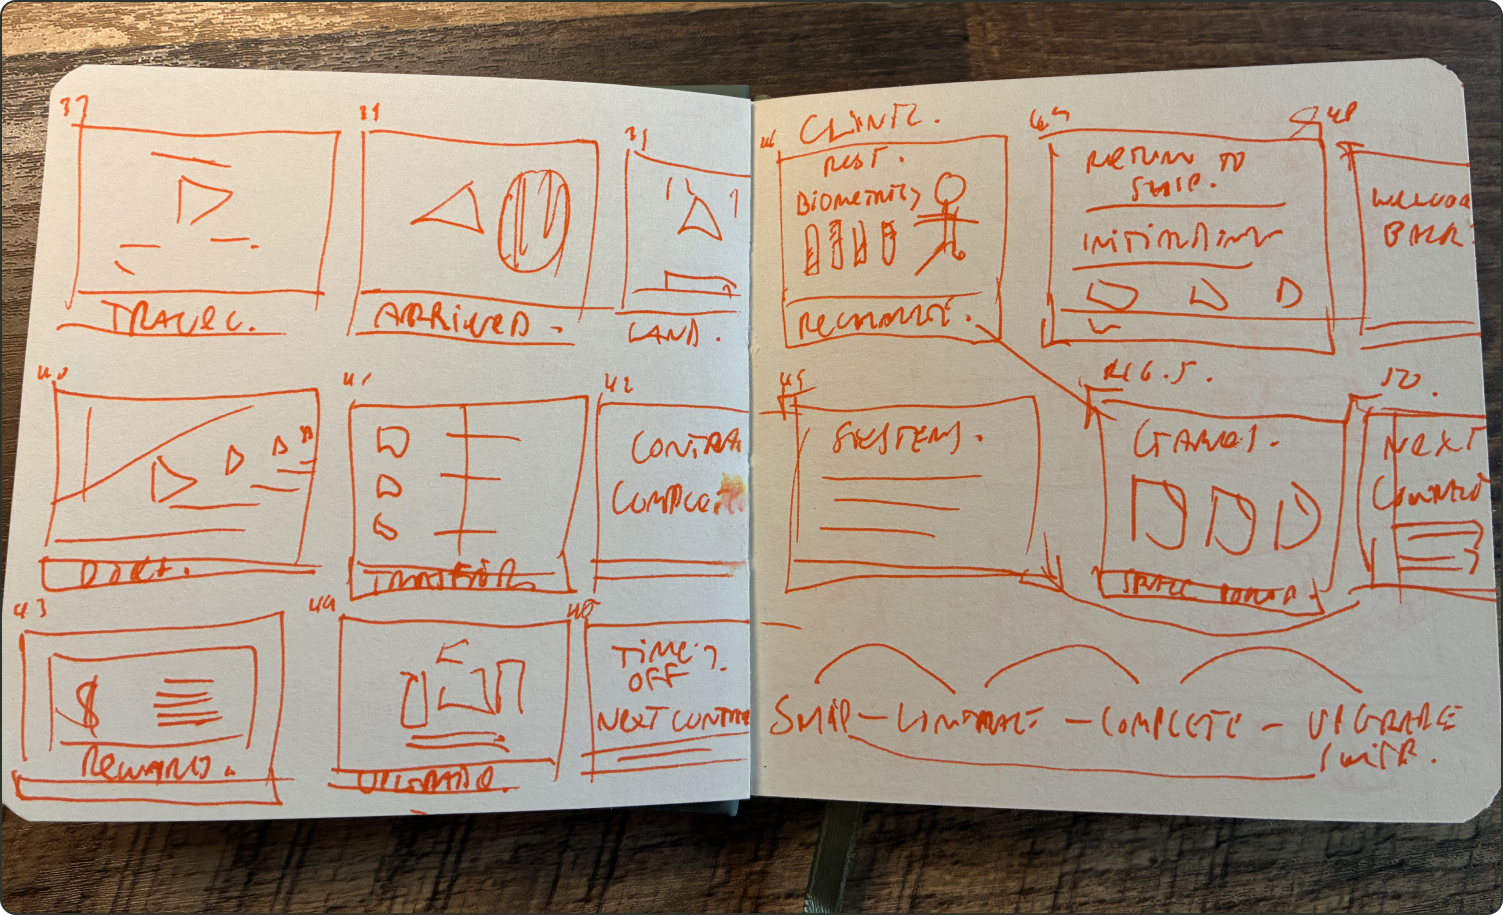 37
TRAVEL.
ARRIVED.
LAND.
40
DOCK.
41
TRANSFER.
42
CONTRA
COMPLET
43
$
REWARD.
44
UPGRADE.
45
TIME
OFF
?
NEXT CONTRA
46
CLINIC.
REST.
BIOMETRICS
RECUPERATE.
47
RETURN TO
SHIP.
INITIALIZING
48
WELCOME
BACK
49
SYSTEMS.
GAMES.
50.
NEXT
CONTRACT
SHIP - CONTRACT - COMPLETE - UPGRADE
SHIP.